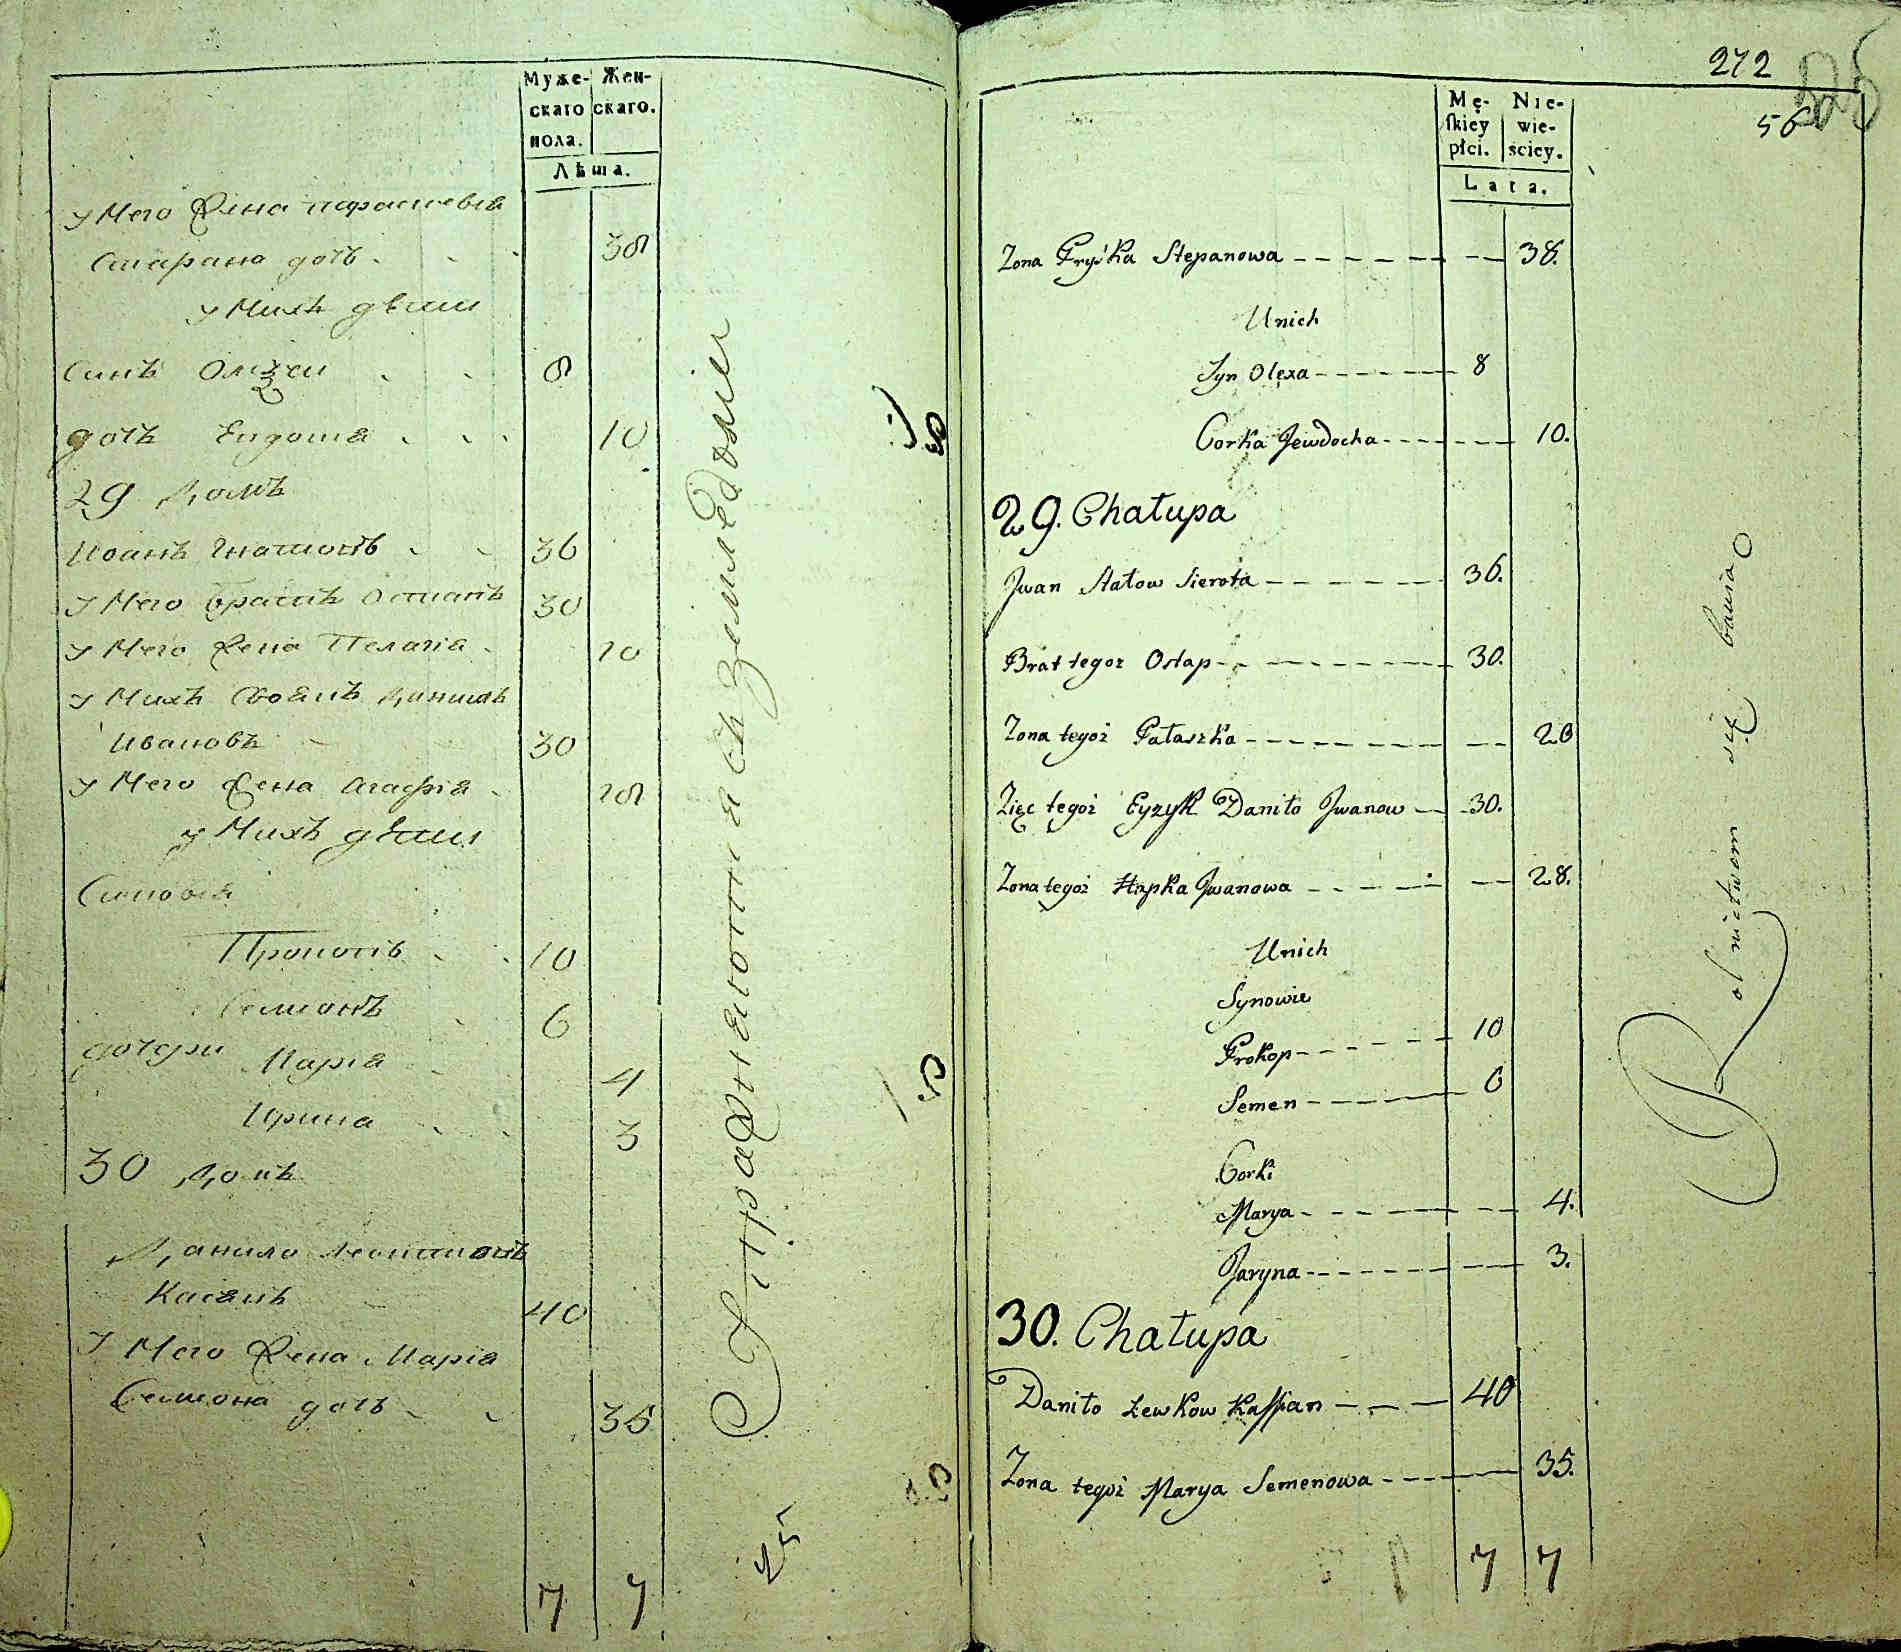 Муже-
скаго
пола.
Жен-
скаго.
Лѣта.
у Него Жена Парасковія
дочь
38
у Нихъ дѣти
Синъ Олѣксѣй
8
дочь Евдокія
10
29 Домъ
Иоанъ
36
у Него Братъ Остапъ
30
у Него Жена Пелагія
20
у Нихъ Данило
Ивановъ
30
у Него Жена Агафія
28
у Нихъ дѣти
Синовья
Прокопъ
10
Семионъ
6
дочери Марія
4
Ирина
3
30 Домъ
Данило
40
у Него Жена Марія
Семиона дочь
35
7 7
Упражняются въ земледѣліи
272
56
Mę-
skiey
płci.
Nie-
wie-
ściey.
Lata.
Zona Pryśka Stepanowa 38.
Unich
Syn Olexa 8
Corka Jewdocha 10.
29. Chałupa
Jwan Nałow Sierota 36.
Brat tegoz Ostap 30.
Zona tegoż Pałaszka 20
Zięc tegoż Eyzyk Daniło Jwanow 30.
Zona tegoż Hapka Jwanowa 28.
Unich
Synowie
Prokop 10
Semen 6
Corki
Marya 4.
Jaryna 3.
30. Chałupa
Daniło Lewkow Kassian 40
Zona tegoż Marya Semenowa 35.
7 7
Rolnictwem się bawią